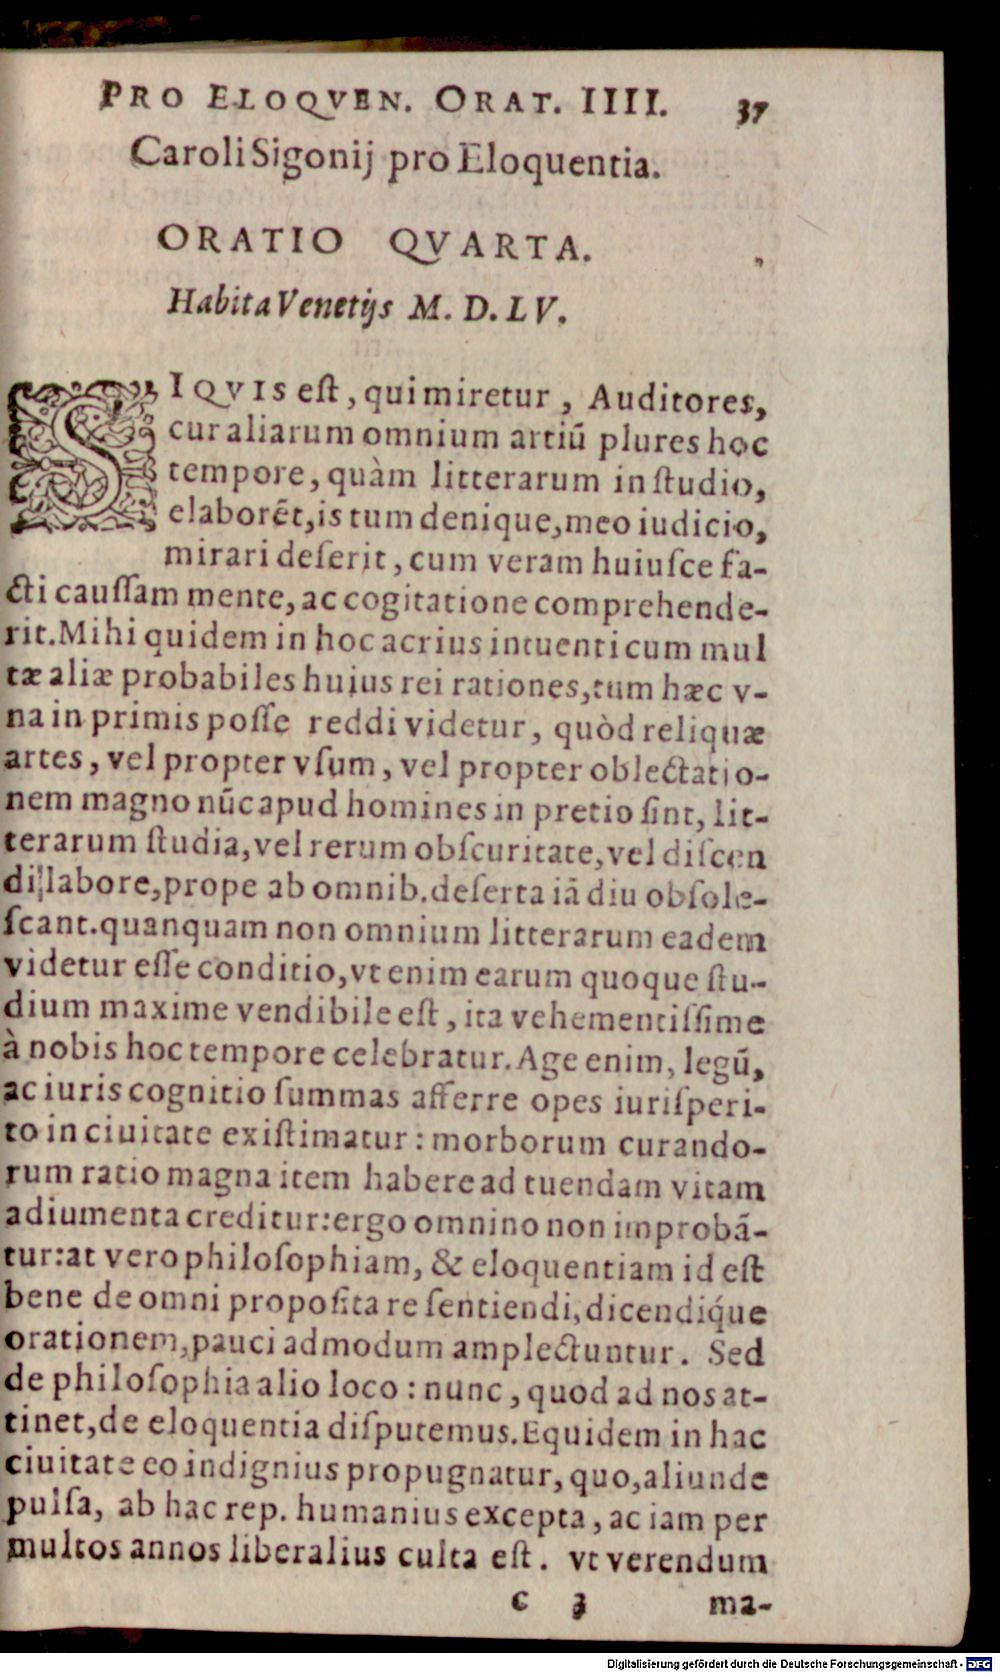 PRO ELOQVEN. ORAT. IIII. 37
Caroli Sigonij pro Eloquentia.
ORATIO QVARTA.
Habita Venetijs M. D. LV.
SIQVIS eſt, qui miretur, Auditores,
cur aliarum omnium artiũ plures hoc
tempore, quàm litterarum in ſtudio,
elaborẽt, is tum denique, meo iudicio,
mirari deſerit, cum veram huiuſce fa-
cti cauſſam mente, ac cogitatione comprehende-
rit. Mihi quidem in hoc acrius intuenti cum mul
tæ aliæ probabiles huius rei rationes, tum hæc v-
na in primis poſſe reddi videtur, quòd reliquæ
artes, vel propter vſum, vel propter oblectatio-
nem magno nũc apud homines in pretio ſint, lit-
terarum ſtudia, vel rerum obſcuritate, vel diſcen
di labore, prope ab omnib. deſerta iã diu obſole-
ſcant. quanquam non omnium litterarum eadem
videtur eſſe conditio, vt enim earum quoque ſtu-
dium maxime vendibile eſt, ita vehementiſſime
à nobis hoc tempore celebratur. Age enim, legũ,
ac iuris cognitio ſummas afferre opes iuriſperi-
to in ciuitate exiſtimatur: morborum curando-
rum ratio magna item habere ad tuendam vitam
adiumenta creditur: ergo omnino non improbã-
tur: at vero philoſophiam, & eloquentiam id eſt
bene de omni propoſita re ſentiendi, dicendiq́ue
orationem, pauci admodum amplectuntur. Sed
de philoſophia alio loco: nunc, quod ad nos at-
tinet, de eloquentia diſputemus. Equidem in hac
ciuitate eo indignius propugnatur, quo, aliunde
pulſa, ab hac rep. humanius excepta, ac iam per
multos annos liberalius culta eſt. vt verendum
c 3 ma-
Digitalisierung gefördert durch die Deutsche Forschungsgemeinschaft - DFG